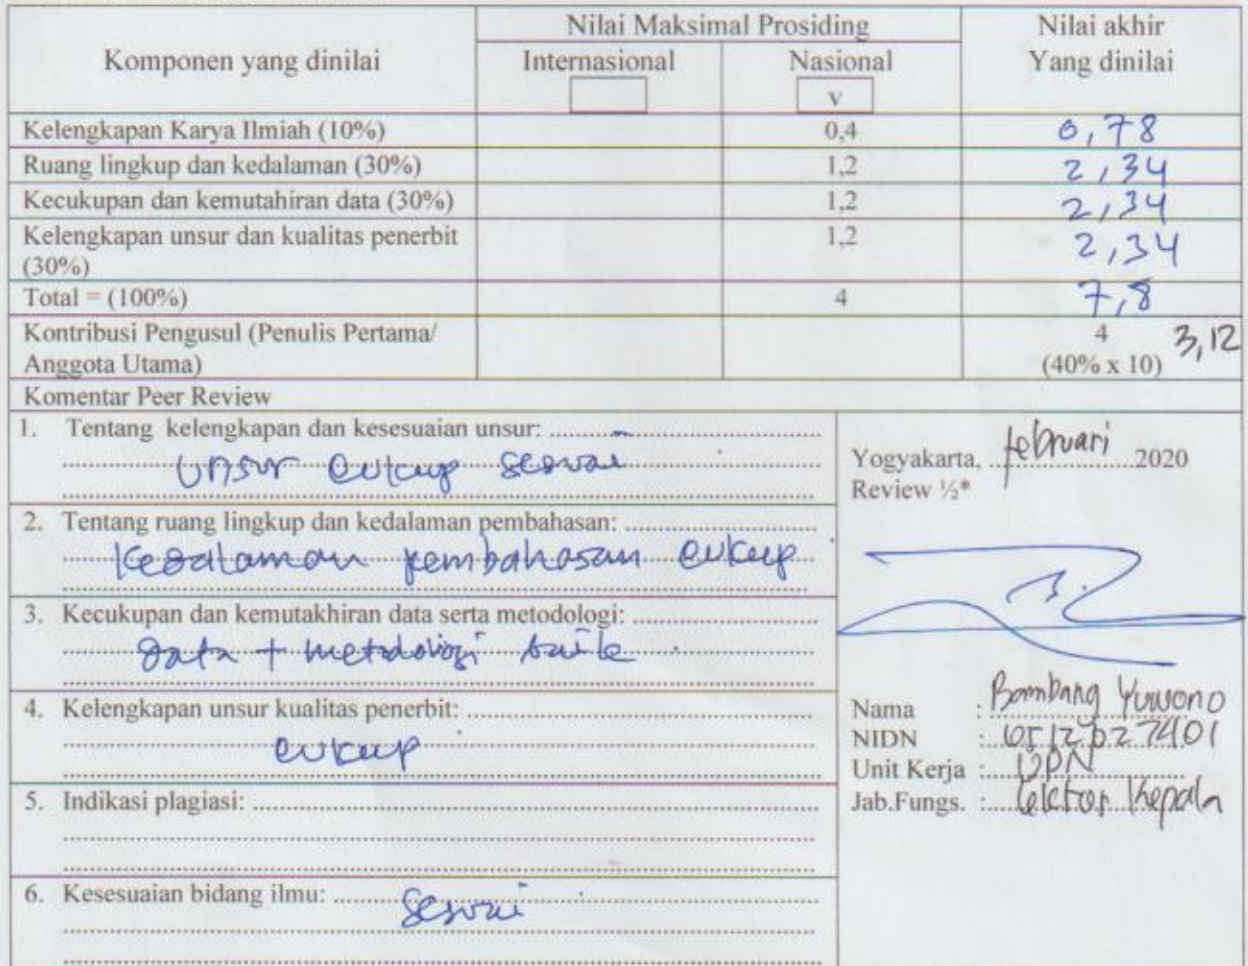 Komponen yang dinilai
Nilai Maksimal Prosiding
Internasional
Nasional
v
Nilai akhir
Yang dinilai
Kelengkapan Karya Ilmiah (10%) 0,4 0,78
Ruang lingkup dan kedalaman (30%) 1,2 2,34
Kecukupan dan kemutahiran data (30%) 1,2 2,34
Kelengkapan unsur dan kualitas penerbit 1,2 2,34
(30%)
Total = (100%) 4 7,8
Kontribusi Pengusul (Penulis Pertama/ 4 3,12
Anggota Utama) (40% x 10)
Komentar Peer Review
1. Tentang kelengkapan dan kesesuaian unsur:
Unsur cukup sesuai
2. Tentang ruang lingkup dan kedalaman pembahasan:
Kedalaman pembahasan cukup
3. Kecukupan dan kemutakhiran data serta metodologi:
data + metodologi baik
4. Kelengkapan unsur kualitas penerbit:
cukup
5. Indikasi plagiasi:
6. Kesesuaian bidang ilmu: sesuai
Yogyakarta, februari 2020
Review ½*
Nama : Bambang Yuwono
NIDN :
Unit Kerja : UPN
Jab.Fungs. : Lektor Kepala